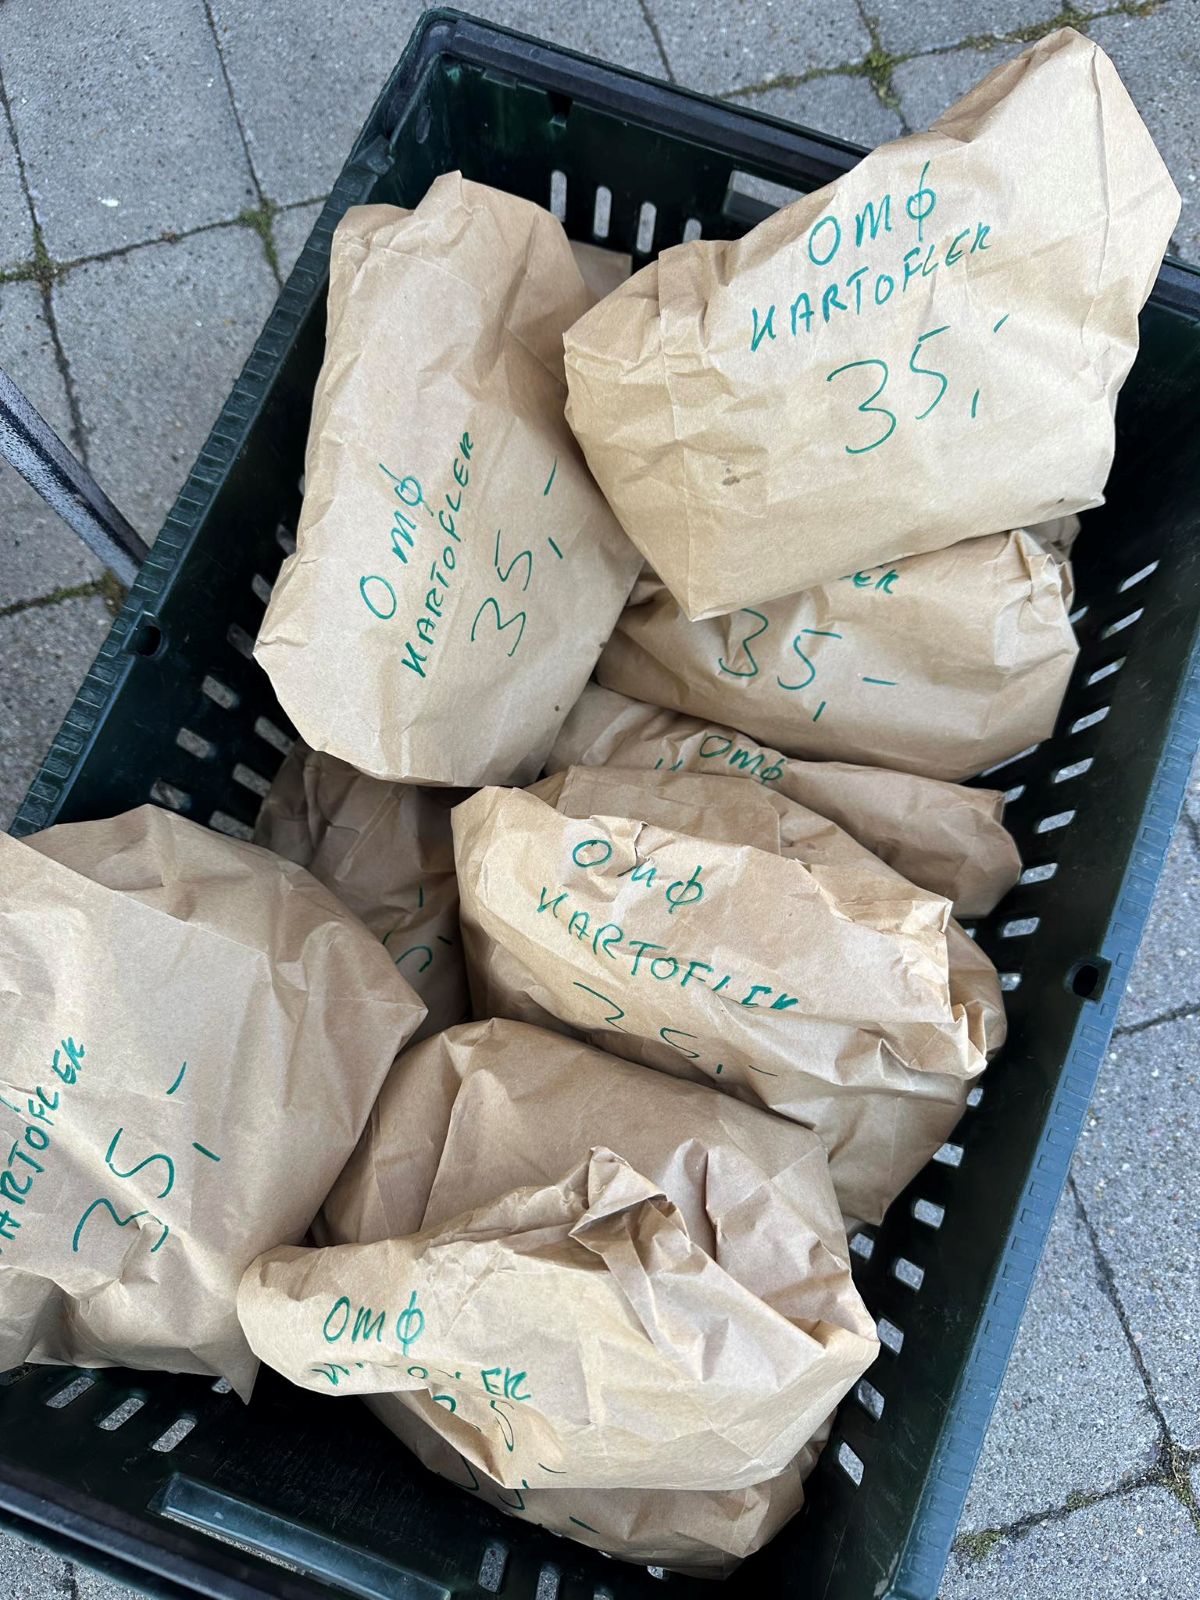 OMØ
KARTOFLER
35,-
OMØ
KARTOFLER
35,-
ER
35,-
OMØ
OMØ
KARTOFLER
35,-
5,-
ARTOFLER
35,-
OMØ
ER